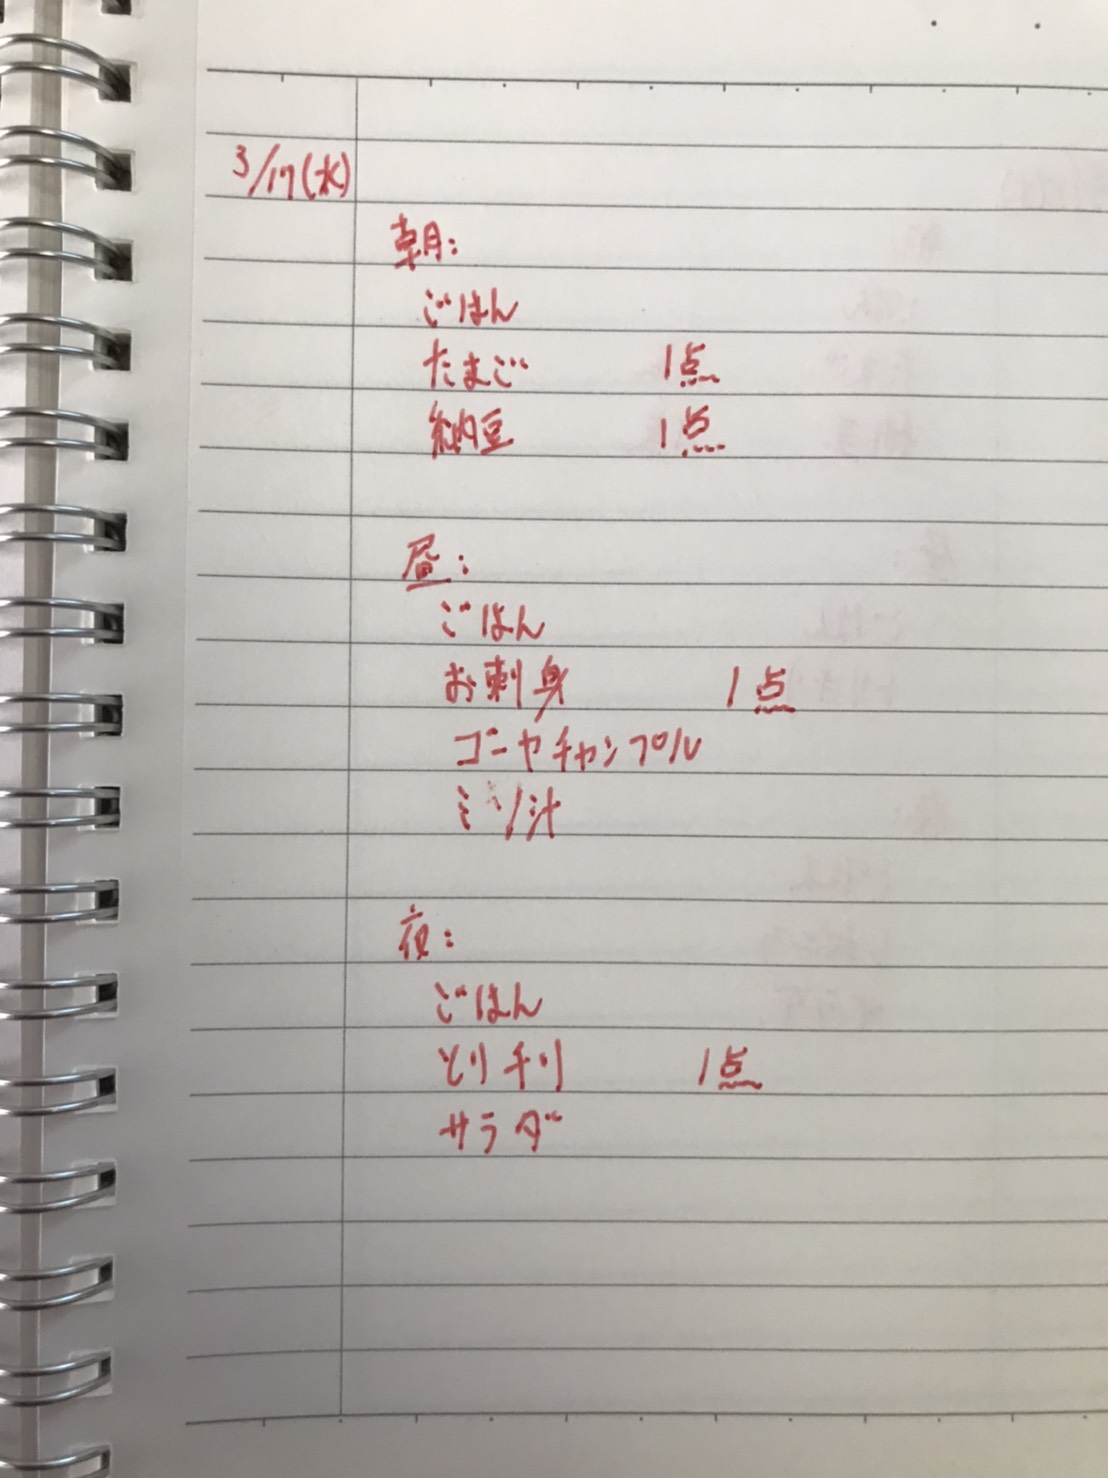 3/17(水)
朝:
ごはん
たまご 1点
納豆 1点
昼:
ごはん
お刺身 1点
ゴーヤチャンプル
ミソ汁
夜:
ごはん
とりチリ 1点
サラダ